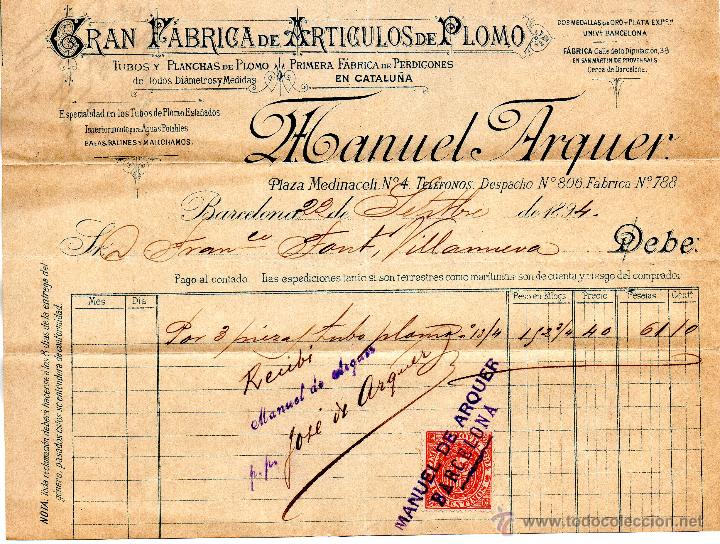 GRAN FÁBRICA DE ARTICULOS DE PLOMO
TUBOS Y PLANCHAS DE PLOMO
de todos Diámetros y Medidas
PRIMERA FÁBRICA DE PERDIGONES
EN CATALUÑA
DOS MEDALLAS DE ORO Y PLATA EXP.ⁿ
UNIV.ˡ BARCELONA
FÁBRICA Calle de la Diputacion, 38
EN SAN MARTIN DE PROVENSALS
Cerca de Barcelona.
Especialidad en los Tubos de Plomo Estañados
Interiormente para Aguas Potables
BALAS, BALINES Y
Manuel Arquer.
Plaza Medinaceli, Nº 4. TELÉFONOS, Despacho Nº 806. Fábrica Nº 788
Barcelona 22 de Setbre de 1894.
Sr. D. Franco Font, Villanueva Debe:
Pago al contado. Las expediciones tanto si son terrestres como marítimas son de cuenta y riesgo del comprador
Mes Dia Peso en kilogs Precio Pesetas Cent.
Por 3 piezas tubo plomo 13/4 40 61 10
Recibí
Manuel de Arquer
p. p. José de Arquer
MANUEL DE ARQUER
BARCELONA
NOTA. Toda reclamación deberá hacerse a los 8 días de la entrega del
género, pasados estos se entenderá de conformidad.
todocoleccion
www.todocoleccion.net